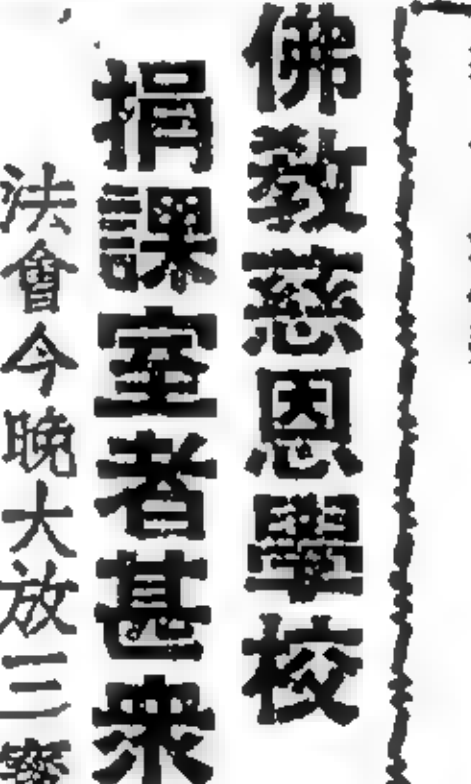 佛教慈恩學校
捐課室者甚衆
法會今晚大放三寶